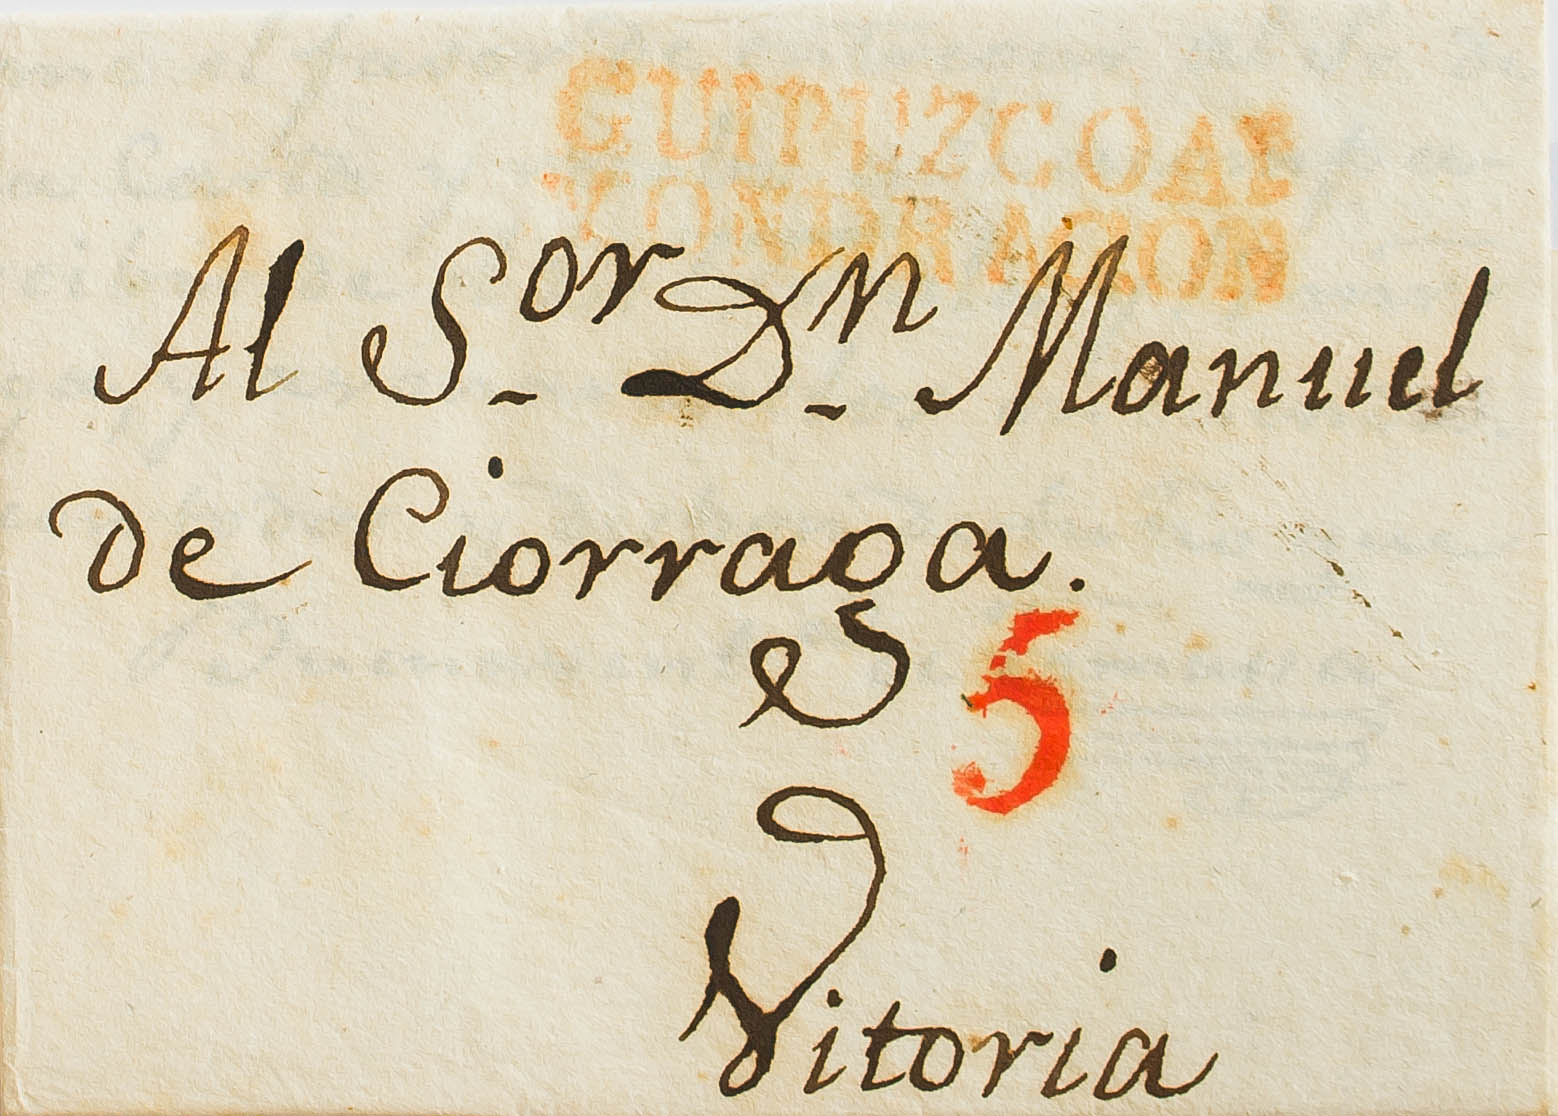 GUIPUZCOA
MONDRAGON
Al S.or D.n Manuel
de Ciorraga.
5
Vitoria